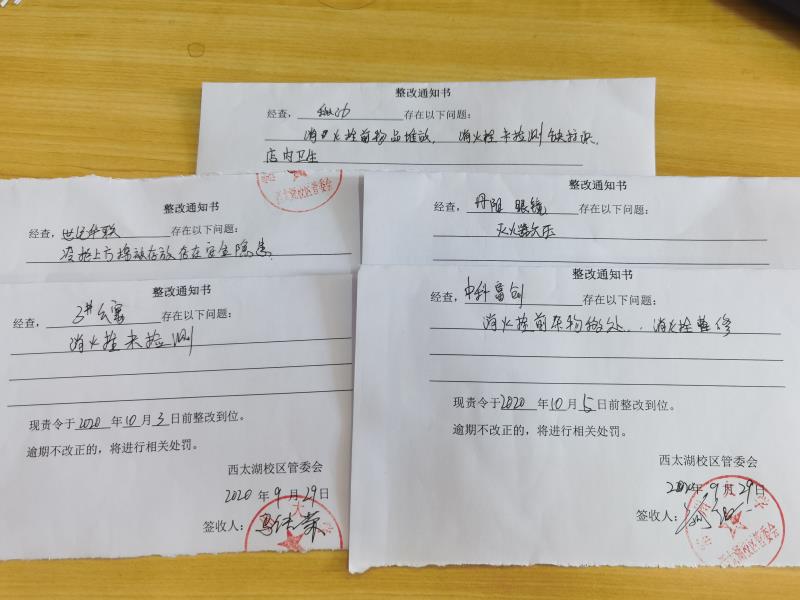 整改通知书
经查，纵动 存在以下问题：
消火栓前物品堆放，消火栓未检测 缺标识，
店内卫生
西太湖校区管委会
整改通知书
经查，世纪华联 存在以下问题：
上方 存放存在安全隐患
整改通知书
经查，丹阳 眼镜 存在以下问题：
灭火器欠压
整改通知书
经查，3#公寓 存在以下问题：
消火栓未检测
现责令于2020 年10月3日前整改到位。
逾期不改正的，将进行相关处罚。
西太湖校区管委会
2020 年9月29日
签收人：
整改通知书
经查，中科富创 存在以下问题：
消火栓前杂物 处，消火栓整修
现责令于2020 年10月5日前整改到位。
逾期不改正的，将进行相关处罚。
西太湖校区管委会
2020年9月29日
签收人：
西太湖校区管委会